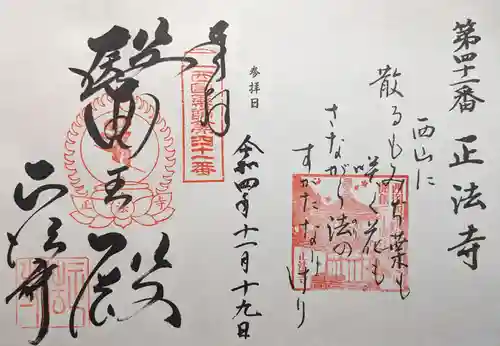 第四十一番 正法寺
西山に
散るもみぢ葉も
咲く花も
さながら法の
すがたなりけり
参拝日
令和四年十一月十九日
奉拝
西国薬師第四十一番
醫王殿
正法寺